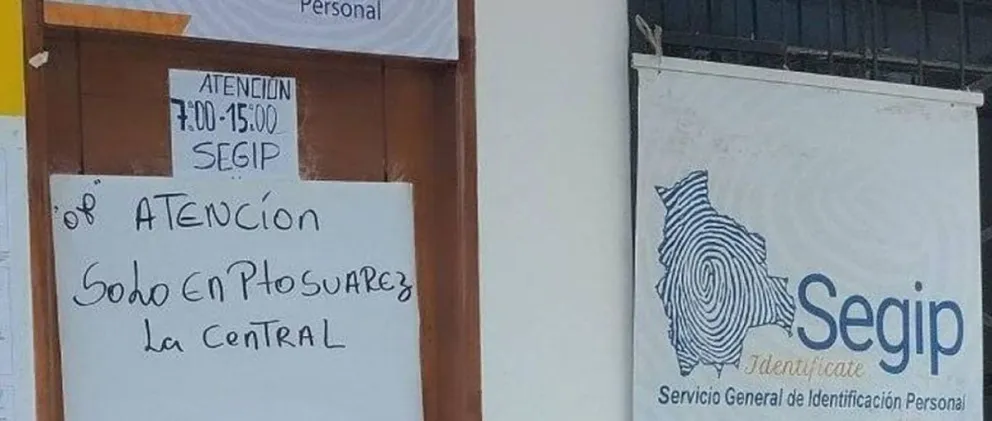 Personal
ATENCIÓN
7:00-15:00
SEGIP
"of" ATENCIÓN
SOLO EN PtO SUAREZ
La CENTRAL
Segip
Identifícate
Servicio General de Identificación Personal